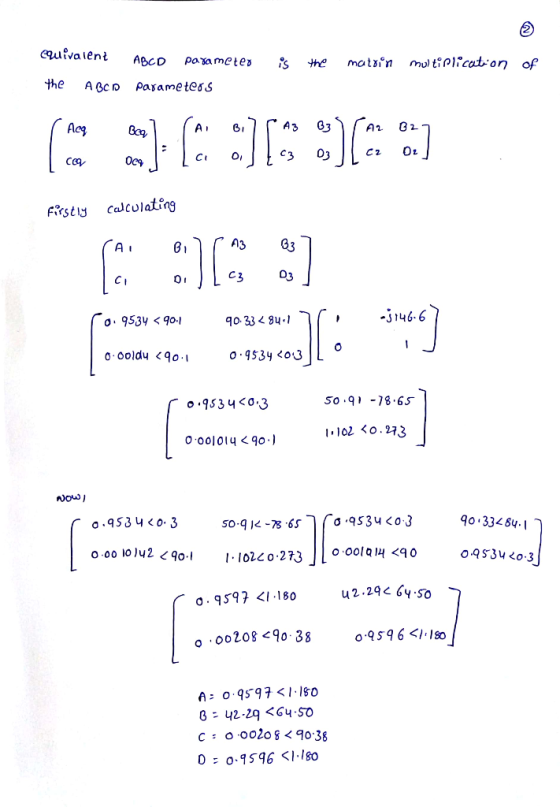 ②
equivalent ABCD parameter is the matrix multiplication of
the ABCD parameters
[Aeq Beq Ceq Deq] = [A1 B1 C1 D1] [A3 B3 C3 D3] [A2 B2 C2 D2]
Firstly calculating
[A1 B1 C1 D1] [A3 B3 C3 D3]
[0.9534 <90.1 90.33 < 84.1 0.00104 <90.1 0.9534 <0.3] [1 -j146.6 0 1]
[0.9534<0.3 50.91 -78.65 0.001014 <90.1 1.102 <0.273]
Now,
[0.9534<0.3 50.91< -78.65 0.0010142 <90.1 1.102<0.273] [0.9534<0.3 90.33<84.1 0.001014 <90 0.9534<0.3]
[0.9597 <1.180 42.29< 64.50 0.00208 <90.38 0.9596 <1.180]
A= 0.9597<1.180
B = 42.29 <64.50
C = 0.00208 < 90.38
D = 0.9596 <1.180